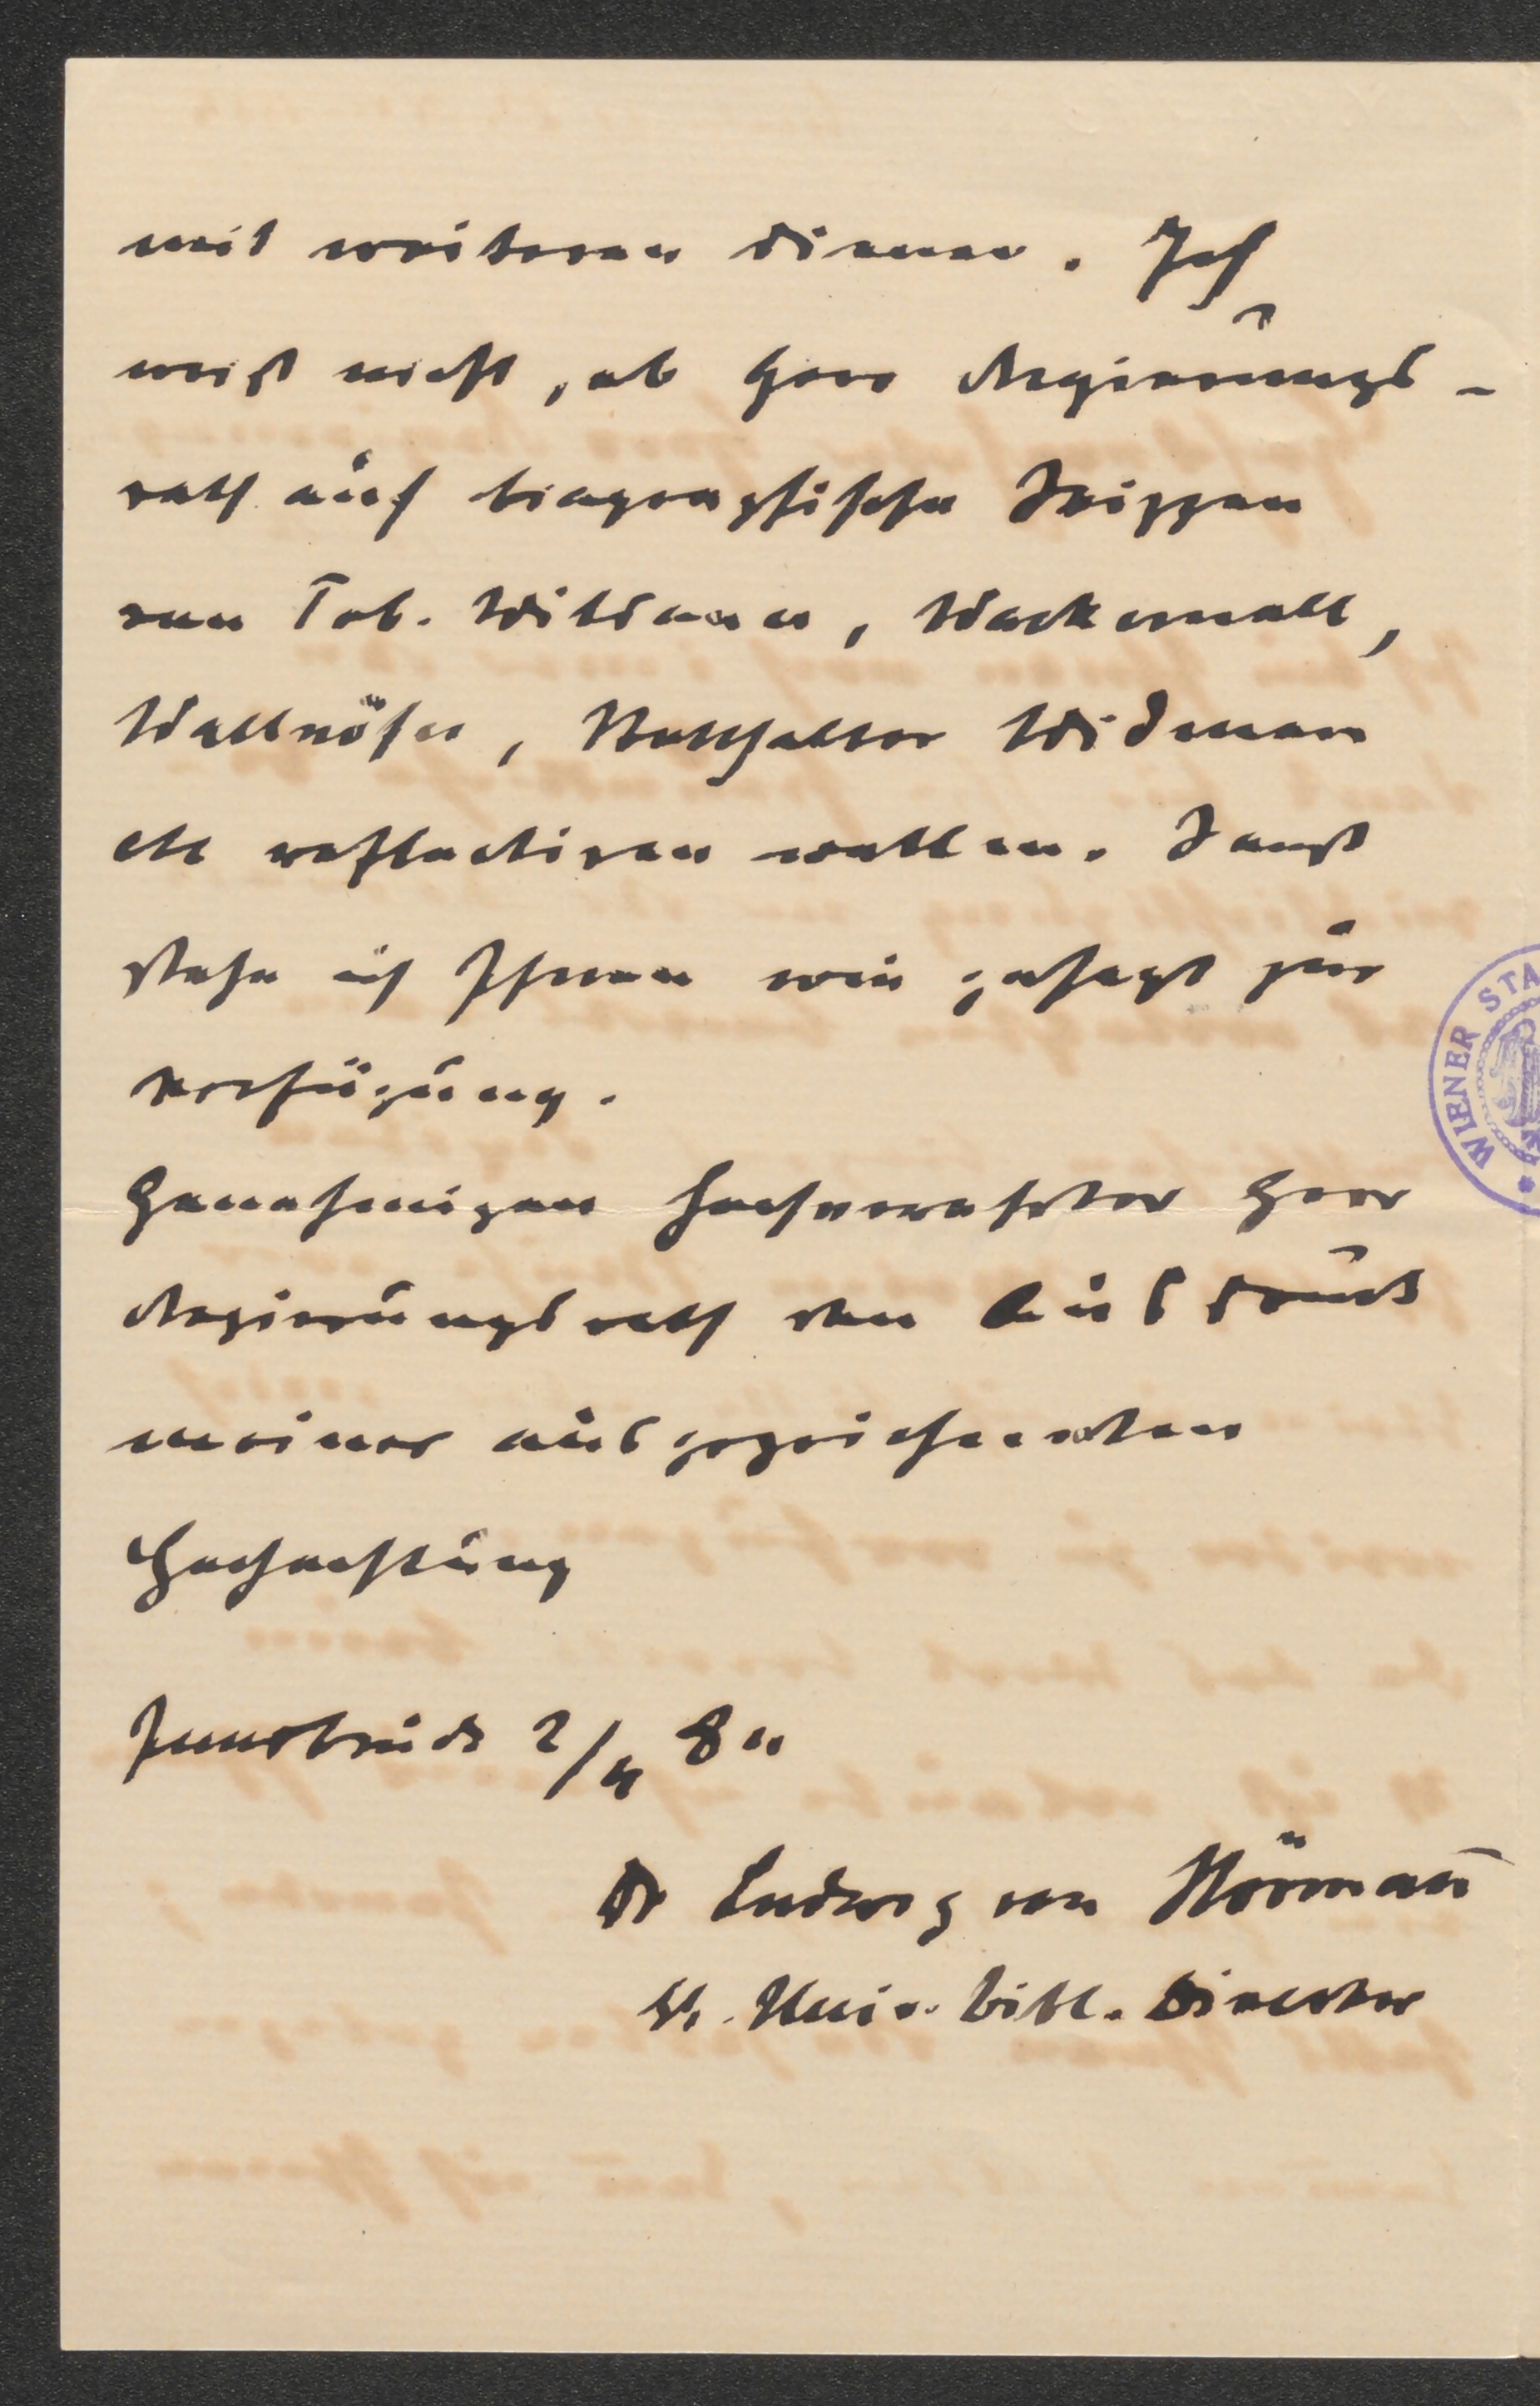 mit weiteren dienen. Ich
weiß nicht, ob Herr Regierungs-
rath auf biographische Skizzen
von Tob. Wildauer, Wackernell,
Wallnöfer, Statthalter Widman
etc reflectiren wollen. Sonst
stehe ich Ihnen wie gesagt zur
Verfügung.
Genehmigen hochverehrter Herr
Regierungsrath den Ausdruck
meiner ausgezeichneten
Hochachtung
Innsbruck 2/4
Dr Ludwig von Hörmann
Univ. bibl. Director
WIENER STA